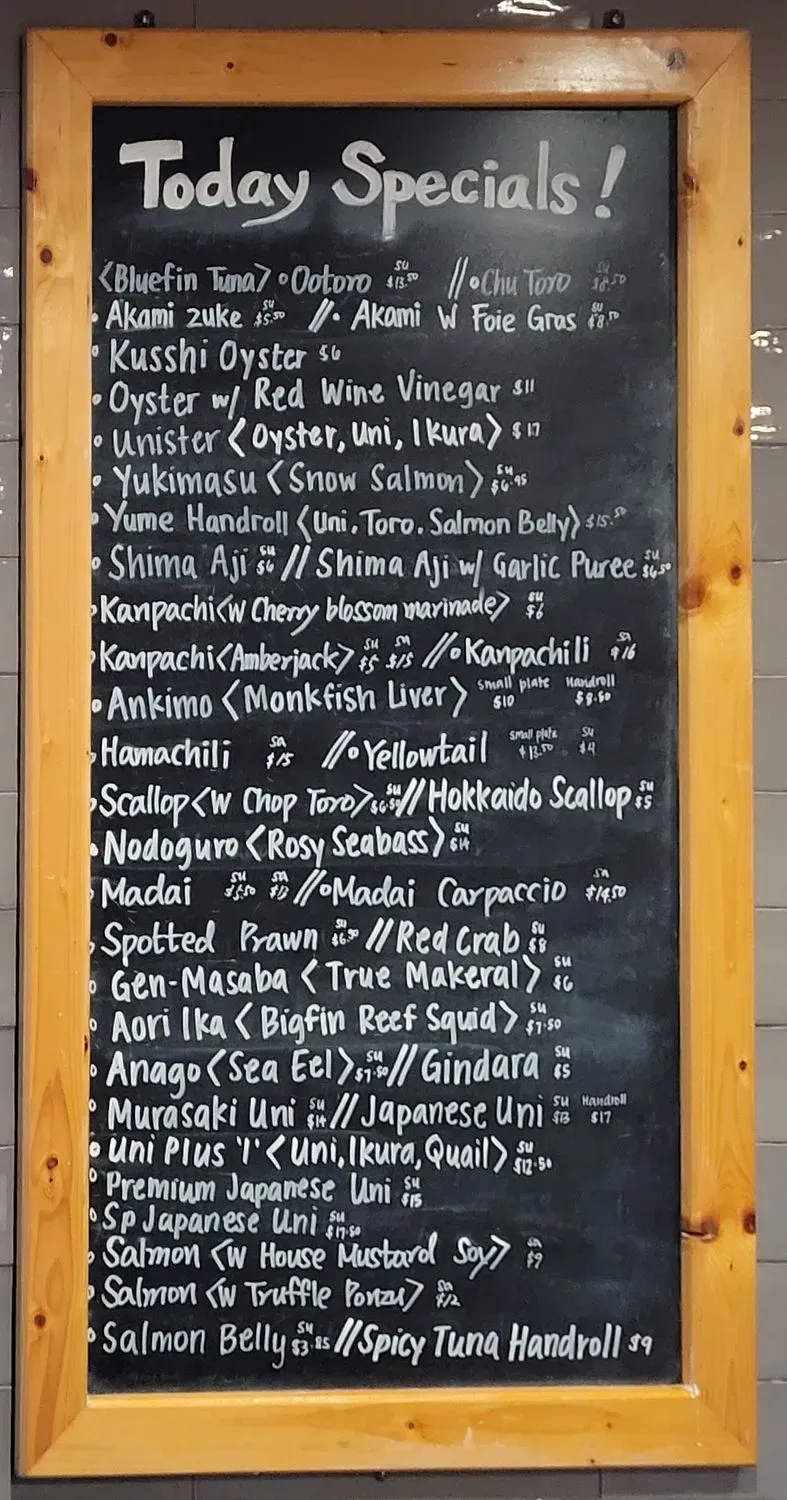 Today Specials!
<Bluefin Tuna> • Ootoro su $13.50 // • Chu Toro su
• Akami zuke su $5.50 // • Akami W Foie Gras su $8.50
• Kusshi Oyster $6
• Oyster w/ Red Wine Vinegar $11
• Unister <Oyster, Uni, Ikura> $17
• Yukimasu <Snow Salmon> su $6.95
• Yume Handroll <Uni. Toro. Salmon Belly> $15.50
• Shima Aji su $6 // Shima Aji w/ Garlic Puree su $6.50
• Kanpachi <W Cherry blossom marinade> su $6
• Kanpachi <Amberjack> su $5 sa $15 // • Kanpachili sa $16
• Ankimo <Monkfish Liver> Small plate $10 Handroll $8.50
• Hamachili sa $15 // • Yellowtail Small plate $13.50 su $4
• Scallop <W Chop Toro> su $6.50 // Hokkaido Scallop su $5
• Nodoguro <Rosy Seabass> su $14
• Madai su $5.50 sa // • Madai Carpaccio sa $14.50
• Spotted Prawn su $6.50 // Red Crab su $8
• Gen-Masaba <True Makeral> su $6
• Aori Ika <Bigfin Reef Squid> su $7.50
• Anago <Sea Eel> su $7.50 // Gindara su $5
• Murasaki Uni su $14 // Japanese Uni su $13 Handroll $17
• Uni Plus '1' <Uni, Ikura, Quail> su $12.50
• Premium Japanese Uni su $15
• Sp Japanese Uni su $17.50
• Salmon <W House Mustard Soy> sa $9
• Salmon <W Truffle Ponzu> sa $12
• Salmon Belly su $3.85 // Spicy Tuna Handroll $9